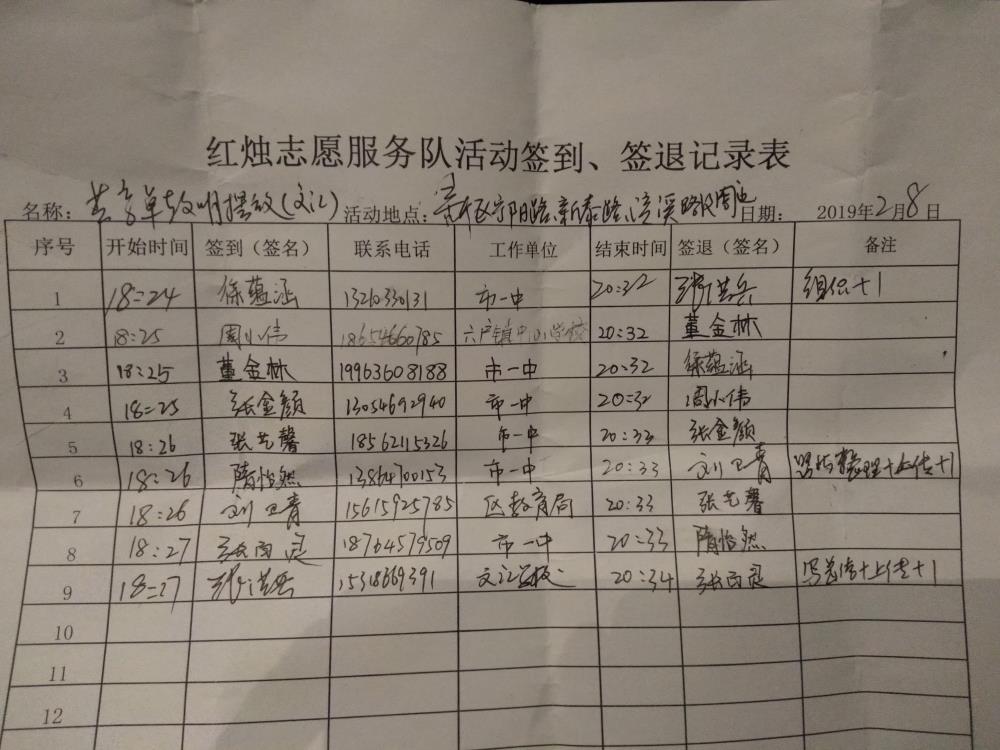 红烛志愿服务队活动签到、签退记录表
名称：共享单车文明摆放（文汇） 活动地点：东城区宁阳路、新泰路、浯溪路及周边 日期： 2019年2月8日
序号 开始时间 签到（签名） 联系电话 工作单位 结束时间 签退（签名） 备注
1 18:24 徐蕴涵 13210330131 市一中 20:32 张洪兵 组织+1
2 18:25 周小伟 18654660785 六户镇中心学校 20:32 董金林
3 18:25 董金林 19963608188 市一中 20:32 徐蕴涵
4 18:25 张金颜 13054692940 市一中 20:32 周小伟
5 18:26 张艺馨 18562115326 市一中 20:33 张金颜
6 18:26 隋怡然 13864700153 市一中 20:33 刘卫青 照片整理+上传+1
7 18:26 刘卫青 15615925785 区教育局 20:33 张艺馨
8 18:27 张雨灵 18764579509 市一中 20:33 隋怡然
9 18:27 张洪兵 15318669391 文汇学校 20:34 张雨灵 写总结+上传+1
10
11
12